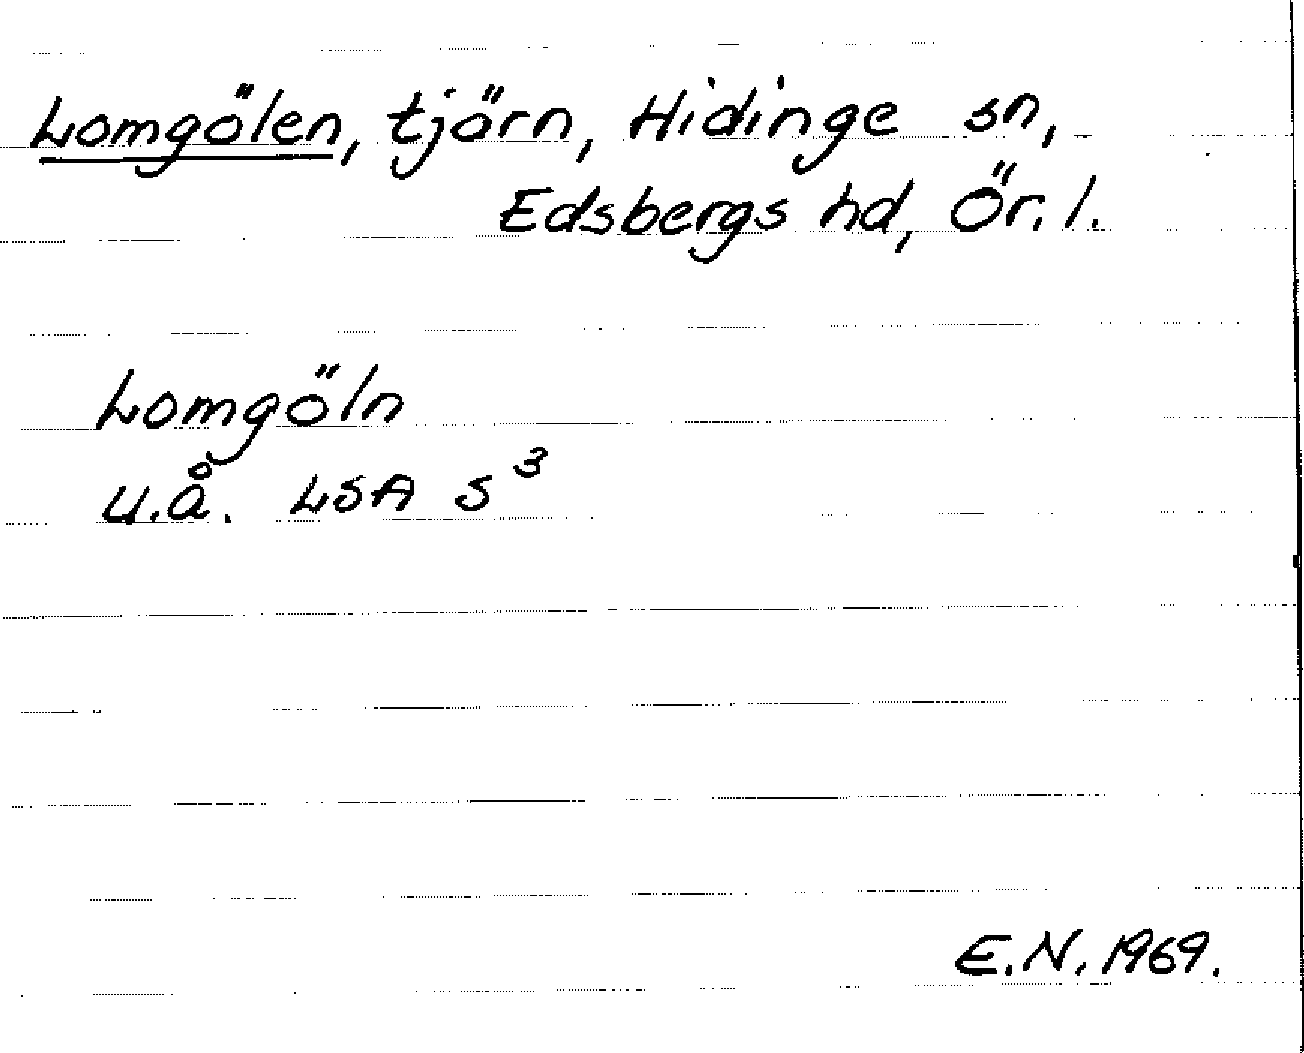 Lomgölen, tjärn, Hidinge sn,
Edsbergs hd, Ör. l.
Lomgöln
u.å. LSA S³
E.N. 1969.